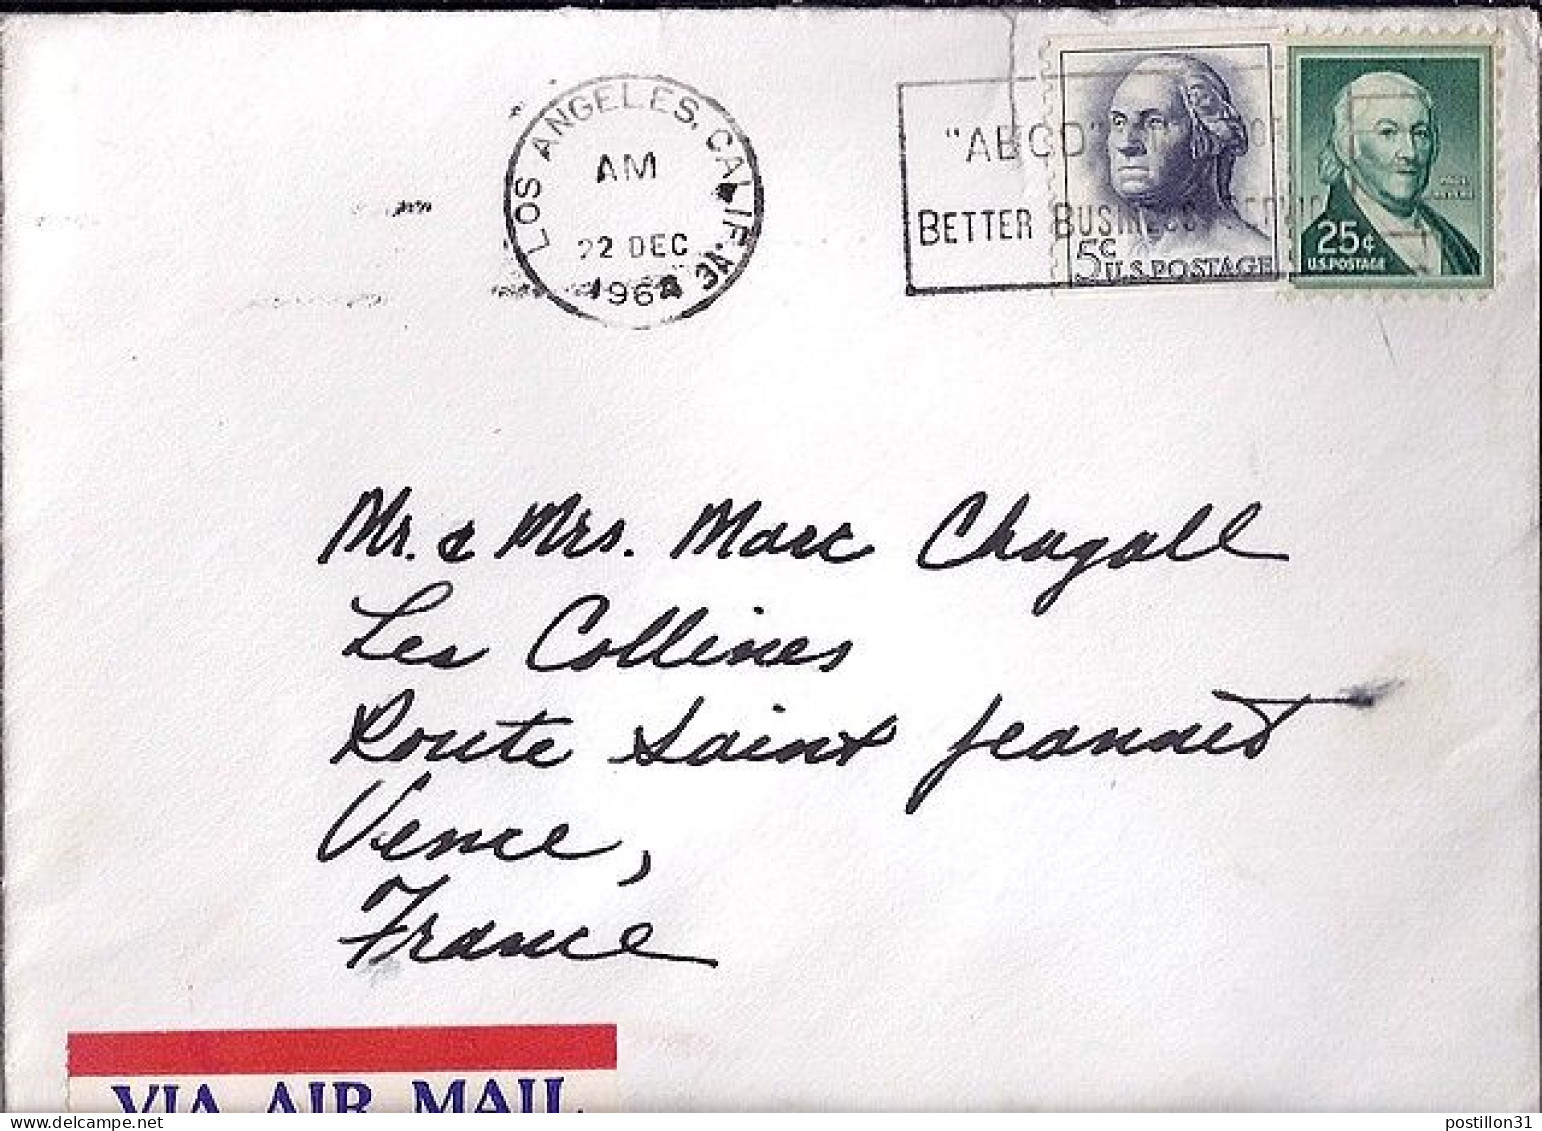 LOS ANGELES, CALIF.
AM
22 DEC
1964
"ABCD"
BETTER BUSINESS
5c
U.S. POSTAGE
25¢
U.S. POSTAGE
Mr. & Mrs. Marc Chagall
Les Collines
Route Saint Jeannet
Vence,
France
VIA AIR MAIL
postillon31